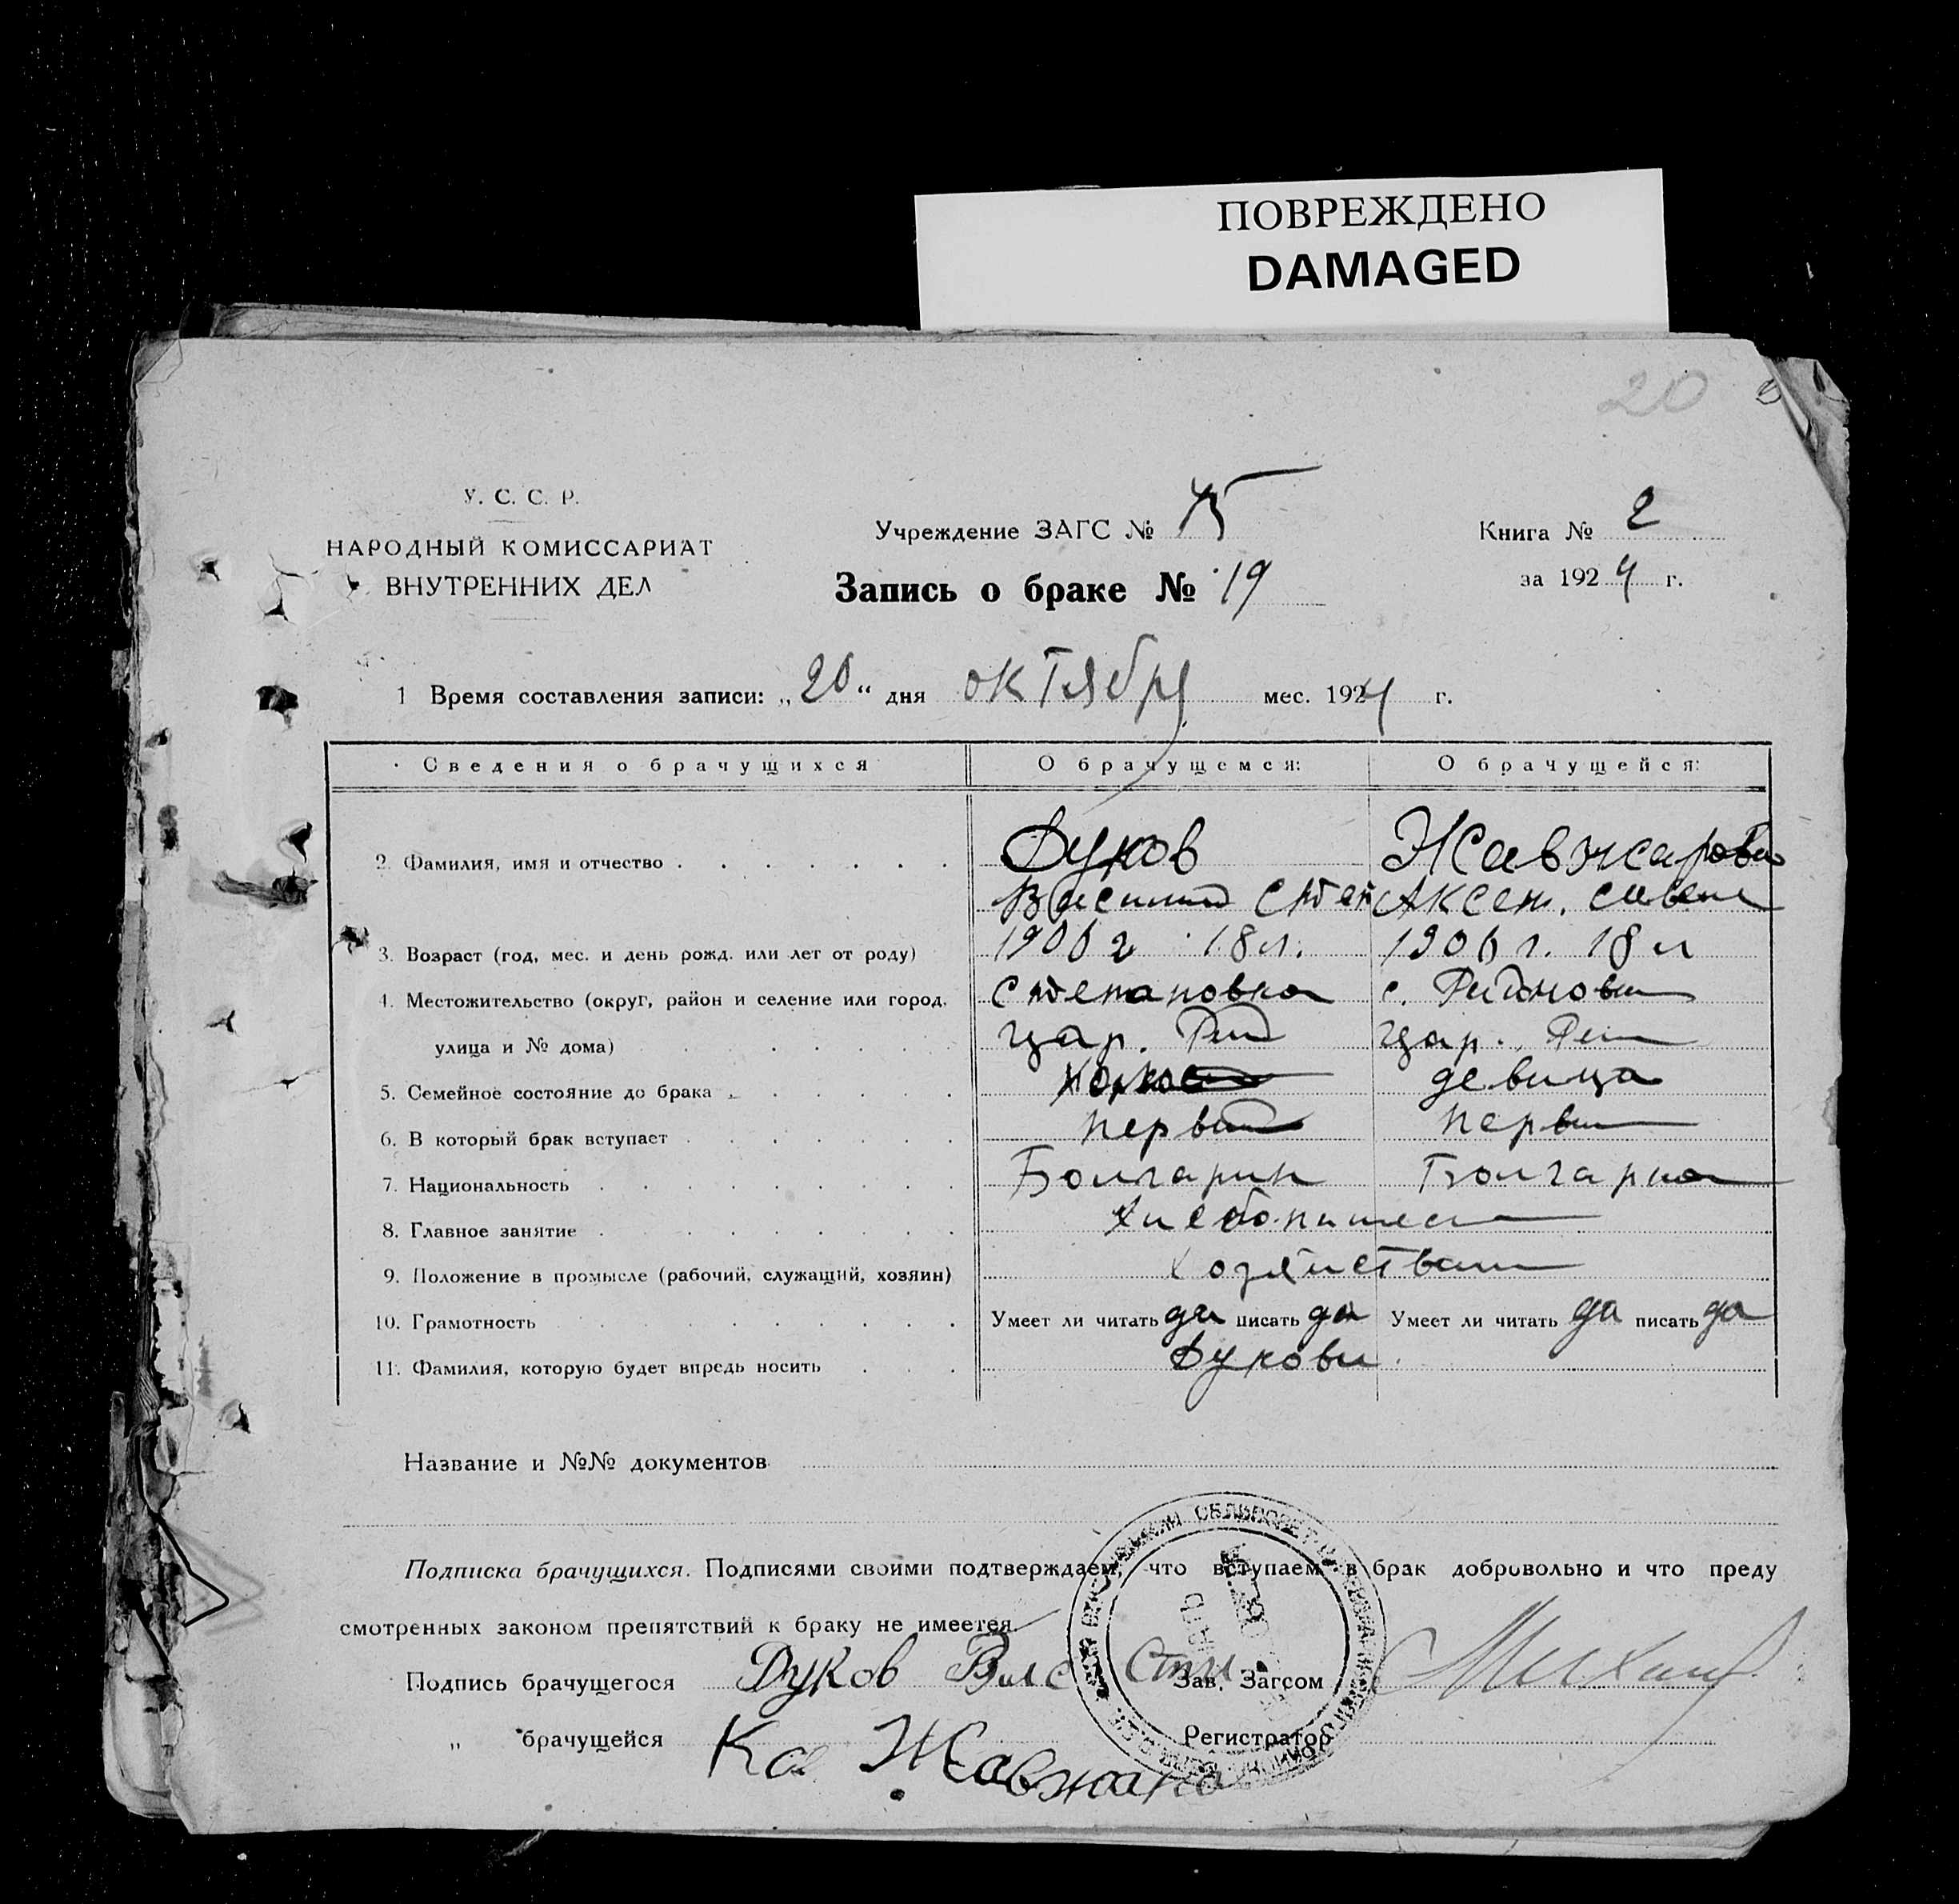 ПОВРЕЖДЕНО
DAMAGED
20
У. С. С. Р.
НАРОДНЫЙ КОМИССАРИАТ
ВНУТРЕННИХ ДЕЛ
Учреждение ЗАГС №
Запись о браке № 19
Книга № 2
за 1924 г.
1 Время составления записи: „20“ дня октября мес. 1924 г.
Сведения о брачущихся О брачущемся: О брачущейся:
2. Фамилия, имя и отчество Дуков
Василий Степ Аксен.
3. Возраст (год, мес. и день рожд. или лет от роду) 1906 г 18 л. 1906 г. 18 л
4. Местожительство (округ, район и селение или город, Степановка с.
улица и № дома) Цар. Цар.
5. Семейное состояние до брака девица
6. В который брак вступает первый первый
7. Национальность Болгарин Болгарка
8. Главное занятие
9. Положение в промысле (рабочий, служащий, хозяин)
10. Грамотность Умеет ли читать да писать да Умеет ли читать да писать да
11. Фамилия, которую будет впредь носить Дукови
Название и №№ документов
Подписка брачущихся. Подписями своими подтверждаем, что вступаем в брак добровольно и что преду
смотренных законом препятствий к браку не имеется.
Подпись брачущегося Дуков Вас Зав. Загсом
„ брачущейся Регистратор